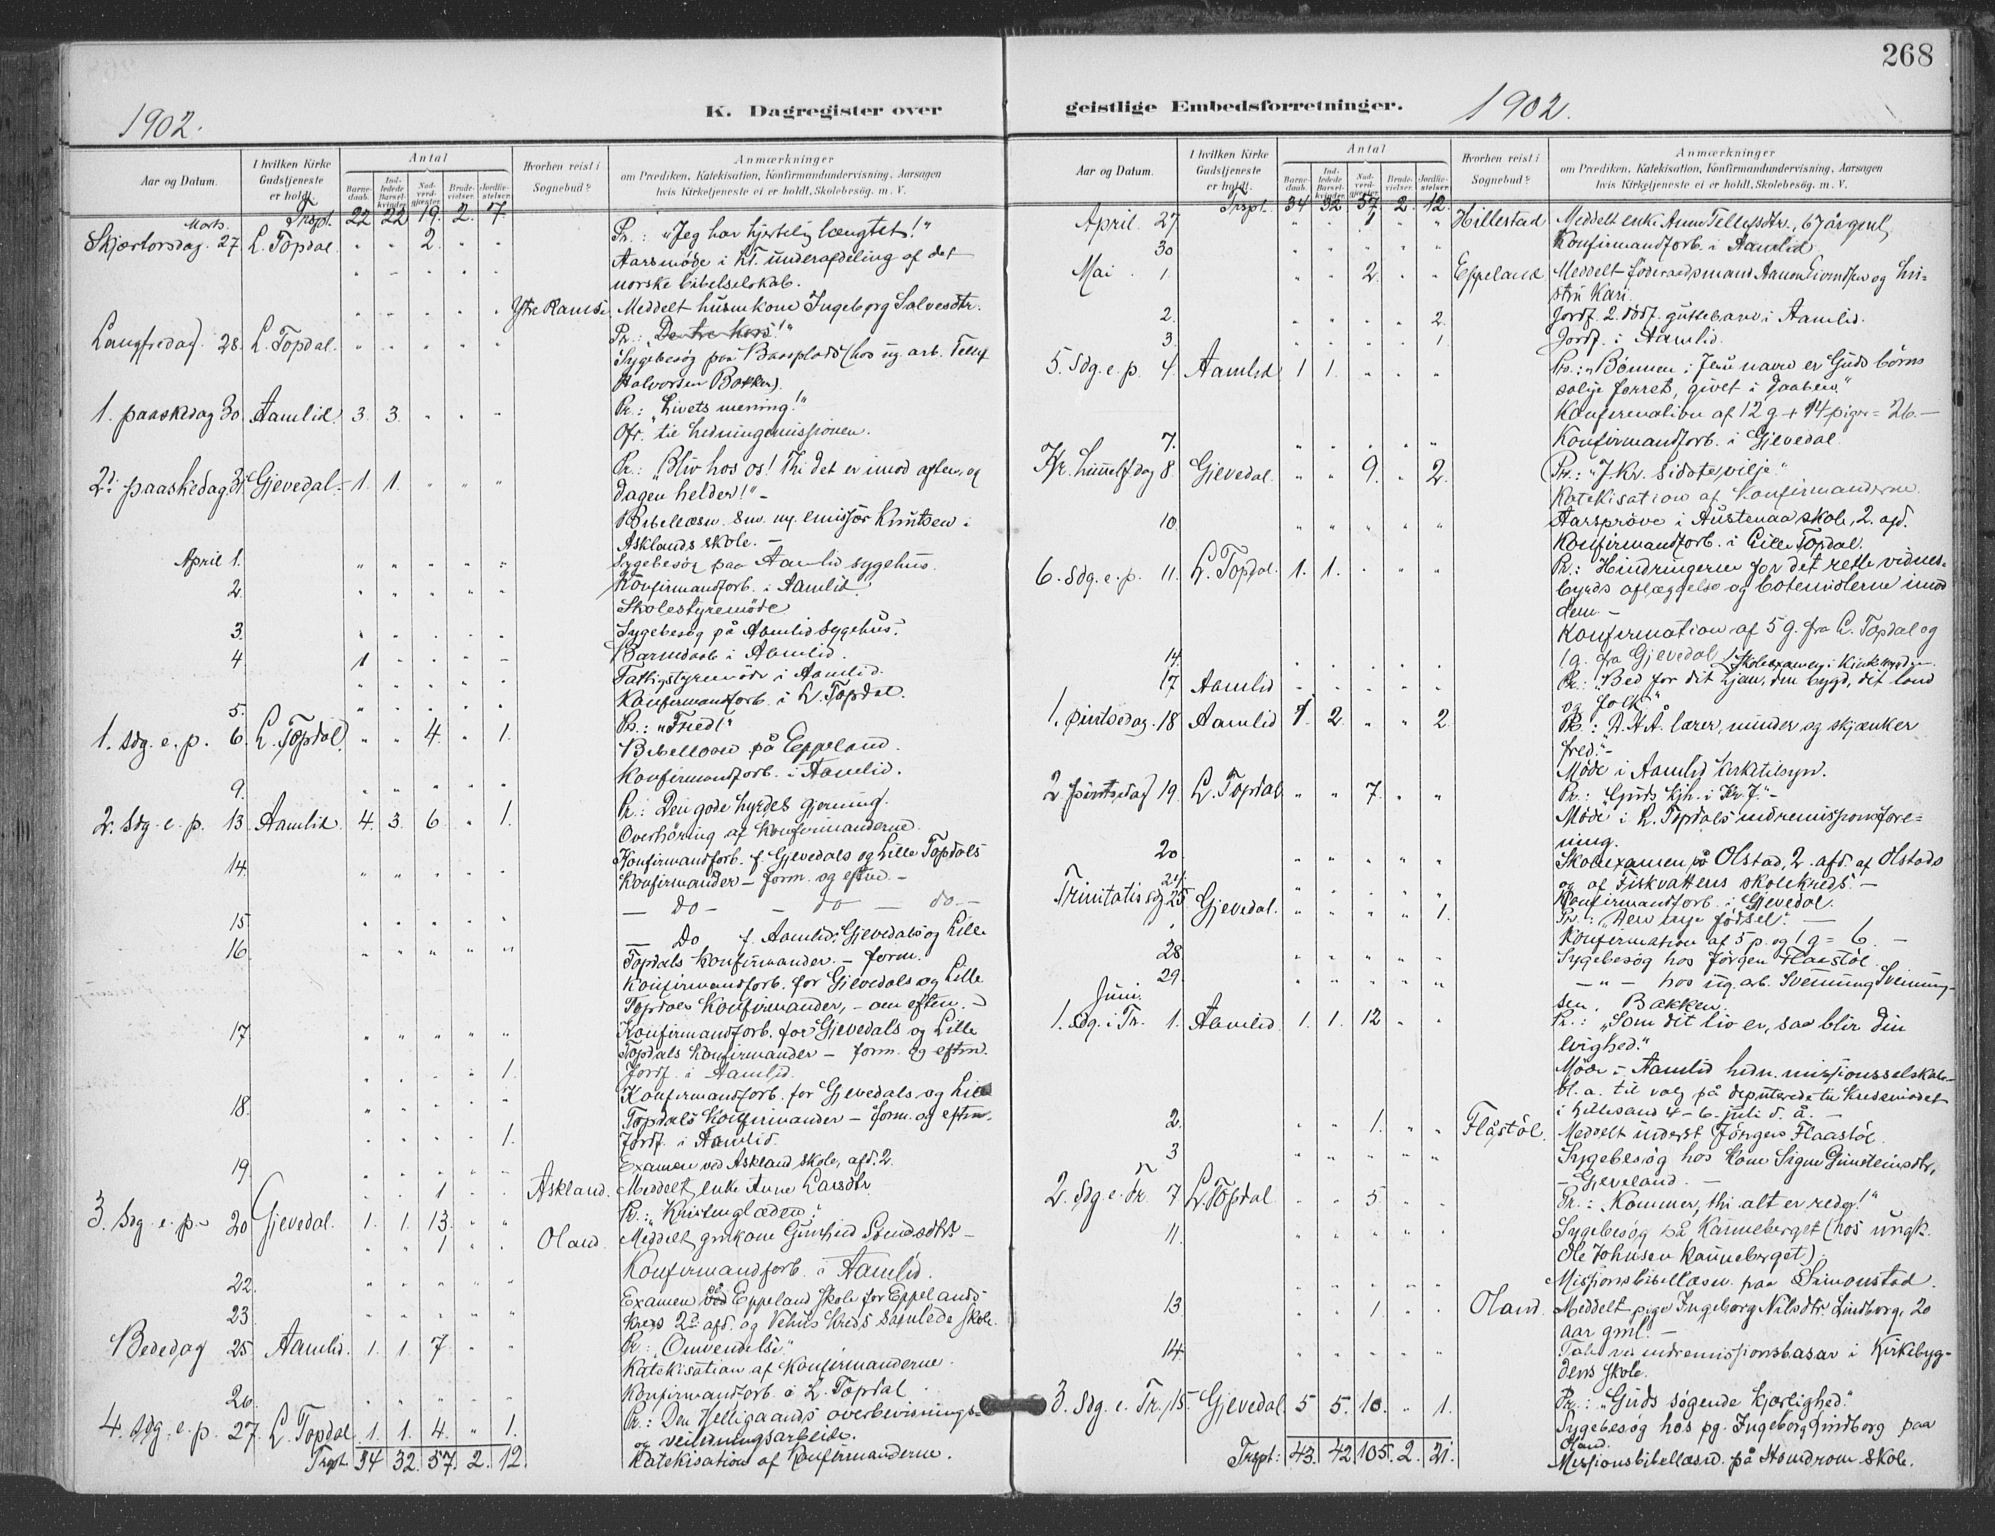 268
1902.
K. Dagregister over
Aar og Datum.
I hvilken Kirke Gudstjeneste er holdt.
Antal
Barnedaab.
Indledede Barselkvinder.
Nadverdgjæster.
Brudevielser.
Jordfæstelser.
Hvorhen reist i Sognebud?
Anmærkninger
om Prædiken, Katekisation, Konfirmandundervisning, Aarsagen
hvis Kirketjeneste ei er holdt, Skolebesøg. m. V.
Trspt. 22 22 19. 2. 7.
Marts.
Skjærtorsdag. 27. L. Topdal. " " 2. " " Pr.: "Jeg har hjertelig længtet!"
Aarsmøde i Kr. underafdeling af det
norske bibelselskab.
Ytre Ramse Meddelt husm. kone Ingeborg Salvesdtr.
Langfredag. 28. L. Topdal. " " " " " Pr.: "De tre kors!"
Sygebesøg paa Basplads (hos ug. arb. Tellef
Halvorsen Bakken).
1. paaskedag 30. Aamlid. 3. 3. " " " Pr.: "Livets mening!"
Ofr. til hedningemissionen.
2. paaskedag 31. Gjevedal. 1. 1. " " " Pr.: "Bliv hos os! Thi det er imod aften, og
dagen helder!" -
Bibellæsn. Knutsen i
Asklands skole. -
April 1. " " " " " Sygebesøg paa Aamlid sygehus.
2. " " " " " Konfirmandforb. i Aamlid
Skolestyremöde
3. " " " " Sygebesøg på Aamlid sygehus.
4 1 " " " Barnedaab i Aamlid.
Fattigstyremöde i Aamlid.
5. Konfirmandforb. i L. Topdal.
1. sdg. e. p. 6. L. Topdal. " " 4. " 1. Pr.: "Fred!"
Bibellæsn. på Eppeland.
9. Konfirmandforb. i Aamlid.
2. Sdg. e. p. 13 Aamlid. 4. 3. 6. " 1. Pr.: Den gode hyrdes gjerning.
Overhöring af Konfirmanderne.
14. Konfirmandforb. f. Gjevedals og Lille Topdals
Konfirmander - form. og eftm. -
15 - do - - do - do -
16. - Do f. Aamlids, Gjevedals og Lille
Topdals Konfirmander. - form.
Konfirmandforb. for Gjevedals og Lille
Topdals Konfirmander, - om eftm. -
17 Konfirmandforb. for Gjevedals og Lille
Topdals Konfirmander - form. og eftm.
1. Jordf. i Aamlid.
18. Konfirmandforb. for Gjevedals og Lille
Topdals Konfirmander - form. og eftm.
1. Jordf. i Aamlid.
19 Examen ved Askland skole, afd. 2.
1 Askland. Meddelt enke Anne Larsdtr
3. Sdg. e. p. 20 Gjevedal. 1. 1. 13. " " Pr.: "Kristenglæden".
1 Oland. Meddelt gmkone Gunhild Svendsdtr -
22. Konfirmandforb. i Aamlid.
23 Examen på Eppeland skole for Eppelands
Kreds 2. afd. og Vehus Kreds samlede skole.
Bededag 25. Aamlid. 1. 1. 7 Pr.: "Omvendelse".
Katekisation af Konfirmanderne.
26. Konfirmandforb. i L. Topdal.
4. sdg. e. p. 27. L. Topdal 1. 1. 4. " 1. Pr.: Den Helligaands overbevisnings-
og veiledningsarbeide.
Katekisation af Konfirmanderne.
Trspt. 34 32. 57. 2. 12.
geistlige Embedsforretninger.
1902.
Aar og Datum.
I hvilken Kirke Gudstjeneste er holdt.
Antal
Barnedaab.
Indledede Barselkvinder.
Nadverdgjæster.
Brudevielser.
Jordfæstelser.
Hvorhen reist i Sognebud?
Anmærkninger
om Prædiken, Katekisation, Konfirmandundervisning, Aarsagen
hvis Kirketjeneste ei er holdt, Skolebesøg m. V.
Trspt. 34 32 57. 2. 12.
April 27 1 Hillestad Meddelt enke Anne Tellefsdtr., 67 år gml,
30 Konfirmandforb. i Aamlid.
Mai 1 2. Eppeland Meddelt föderaadsmand Aanon Eivindsen og hu-
stru Kari.
2. 2. Jordf. 2. guttebarn i Aamlid.
3. 1. Jordf. i Aamlid.
5. sdg. e. p. 4. Aamlid 1 1. Pr.: "Bønnen i Jesu navn er Guds børns
forret, givet i daaben."
Konfirmation af 12 g + 14 piger = 26. -
7. Konfirmandforb. i Gjevedal.
Kr. himelf. dag 8 Gjevedal. " " 9. " 2. Pr.: "J. Kr. sidste vilje"
Katekisation af Konfirmanderne.
10. Aarsprøve i Austenaa skole, 2. afd.
Konfirmandforb. i Lille Topdal.
6. sdg. e. p. 11. L. Topdal. 1. 1. Pr.: Hindringerne for det rette vidnes-
byrds aflæggelse og botemidlerne imod
dem -
Konfirmation af 5 g. fra L. Topdal og
1 g. fra Gjevedal
14. Skoleexamen i Kirkebygden
17 Aamlid Pr.: "Bed for dit hjem, din bygd, dit land
og folk"
1. pintsedag 18 Aamlid 1. 2. " " 2 Pr.: D. H. A. lærer, minder og skjænker
fred."
Möde i Aamlid kirketilsyn.
2 pintsedag 19. L. Topdal " " 7. " " Pr.: "Guds kjh. i Kr. J." -
Möde i L. Topdals indremissionsfore-
ning.
20 Skoleexamen på Olstad, 2. afd. af Olstads
og af Fiskvattens skolekreds. -
24. Konfirmandforb. i Gjevedal.
Trinitatis sdg 25 Gjevedal. 1. Pr.: "Den nye fødsel". -
Konfirmation af 5 p. og 1 g = 6. -
28 Sygebesøg hos Jørgen Flaastöl
29. - " - hos ug. arb. Svenning Svenning-
sen, Bakken.
Juni.
1. sdg. i Tr. 1. Aamlid 1. 1. 12 Pr.: "Som dit liv er, saa blir din
evighed."
Möde i Aamlid hedn. missjonsselskab
bl. a. til valg på deputerede til Kredsmödet
i Lillesand 4-6 juli d. å. -
2. 1. Flåstöl. Meddelt inderst Jörgen Flaastöl.
3 Sygebesøg hos kone Signe Gunsteinsdtr,
- Gjeveland. -
2. sdg. e. Tr. 7 L. Topdal " " 5. Pr.: "Kommer, thi alt er rede!"
11. Sygebesøg på Kanneberget (hos ungk.
Ole Johnsen Kanneberget).
Missionsbibellæsn. paa Simonstad.
13 1. Oland. Meddelt pige Ingeborg Nilsdtr. Lindborg, 20
aar gml. -
14. Tale ved indremissjonsbasar i Kirkebyg-
dens skole.
3. sdg. e. Tr. 15. Gjevedal 5 5. 10. " 1. Pr.: "Guds søgende kjærlighed."
Sygebesøg hos pg. Ingeborg Lindborg paa
Oland.
Missionsbibellæsn. på skole.
Trspt: 43. 42 105. 2. 21.